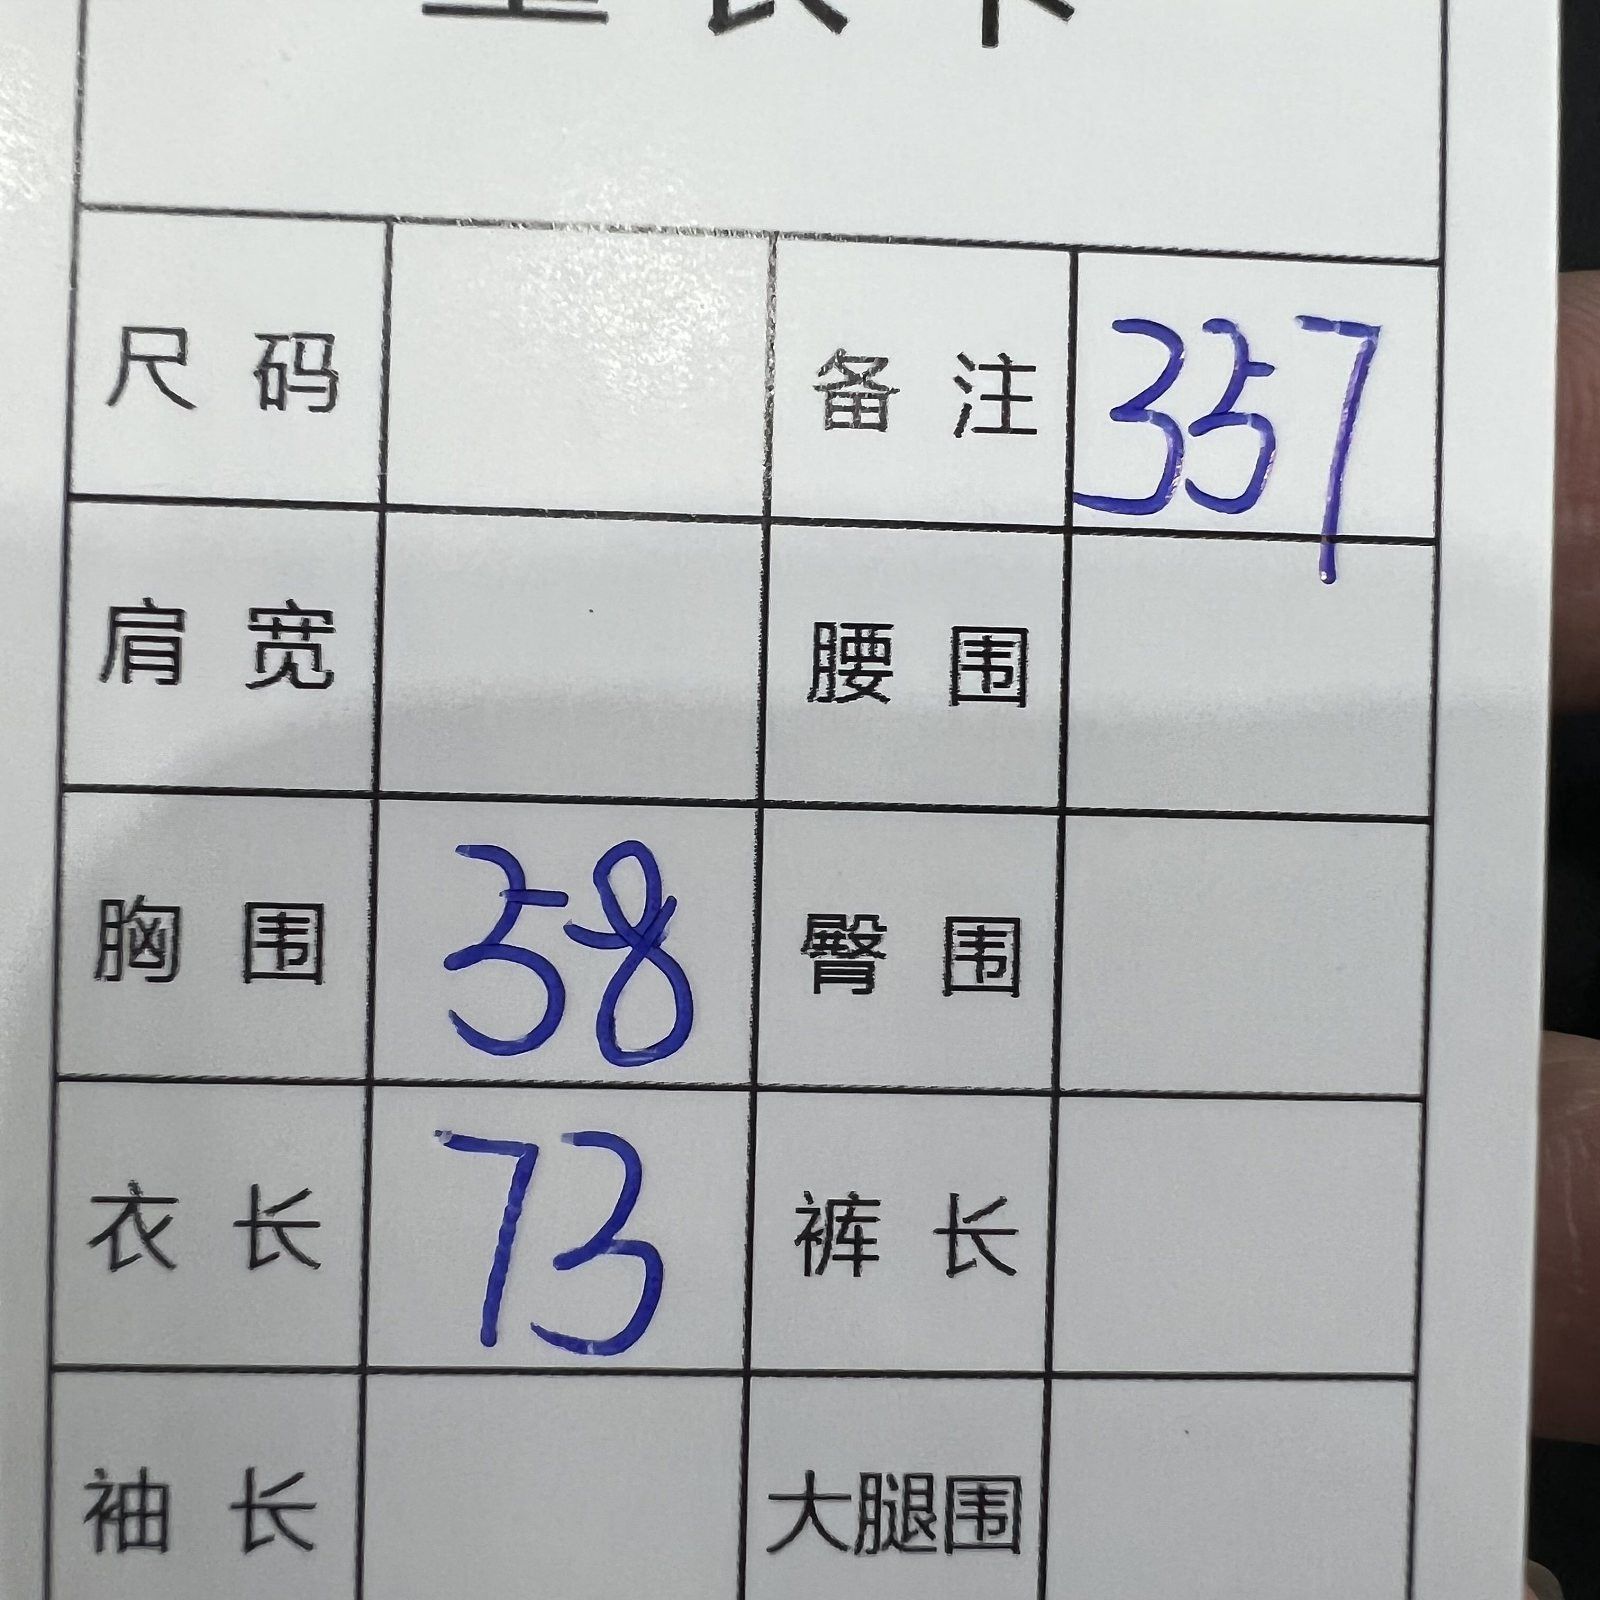 尺码 备注 357
肩宽 腰围
胸围 58 臀围
衣长 73 裤长
袖长 大腿围